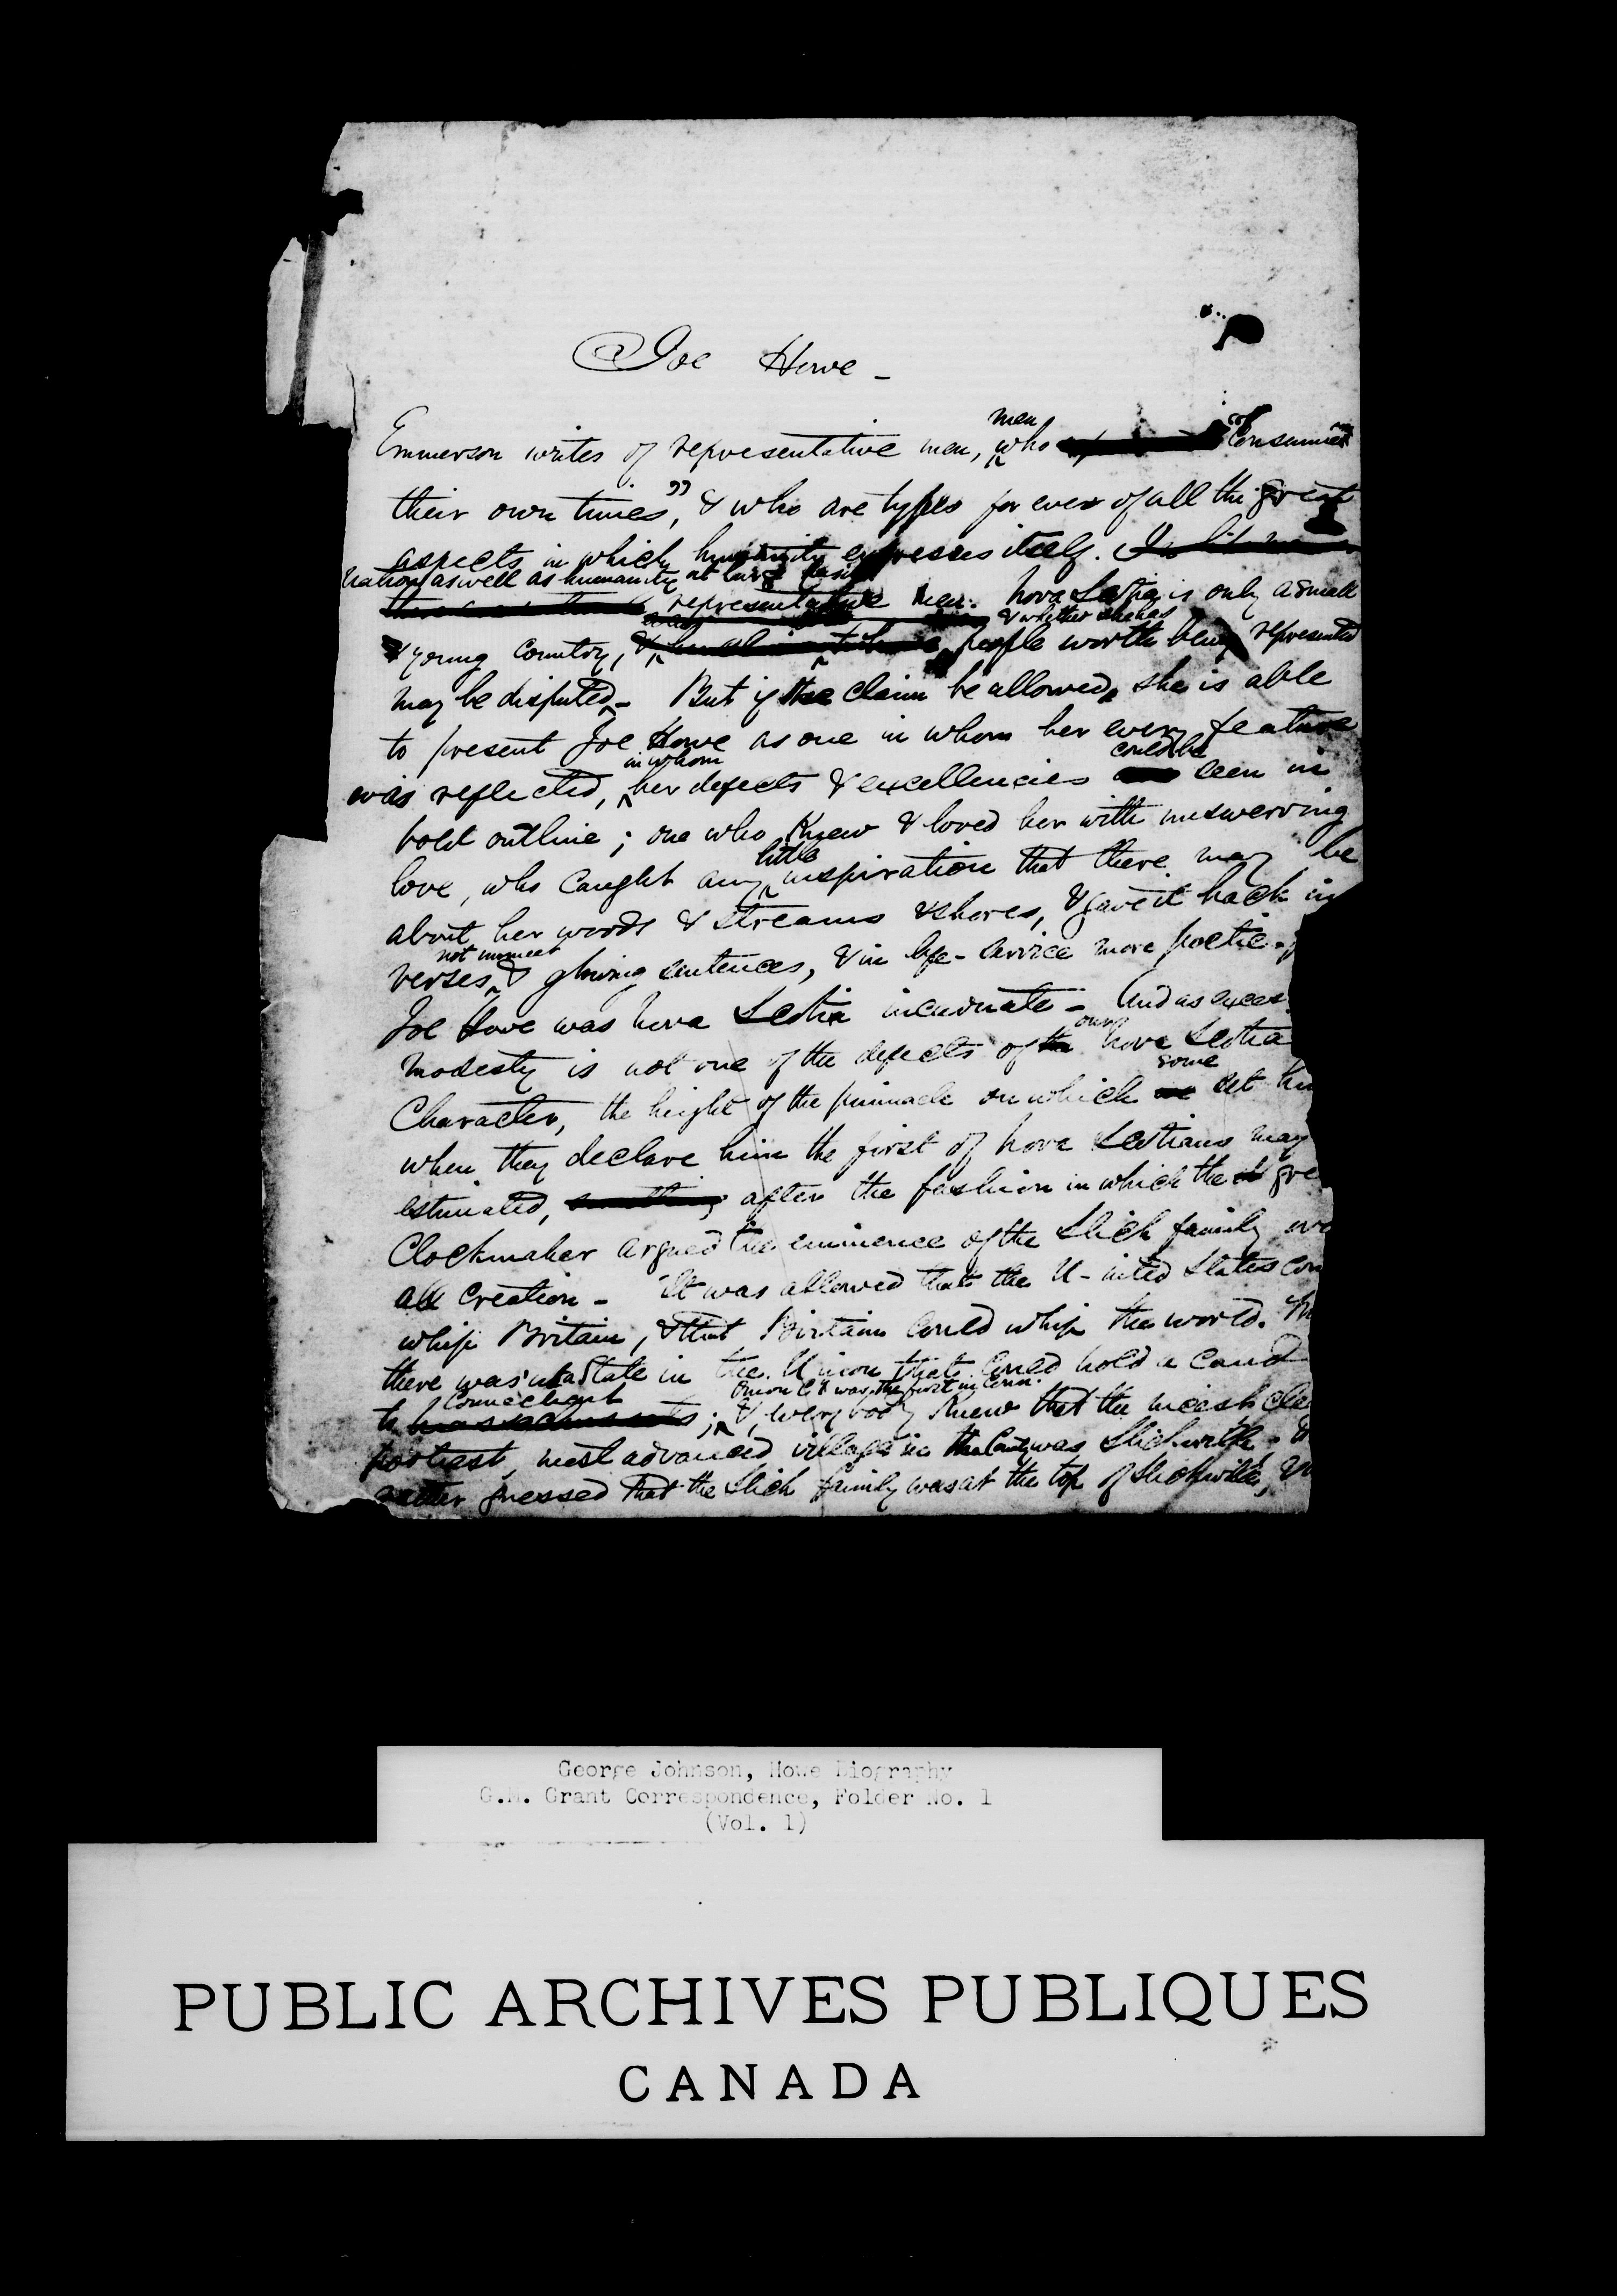 Joe Howe -
Emmerson writes of representative men, men who consumm
their own times", & who are types for ever of all the great
aspects in which humanity expresses itself.
nation as well as humanity at large has its
representative men. Nova Scotia is only a small
& young country, & whether she has people worth being represented
may be disputed. - But if the claim be allowed, she is able
to present Joe Howe as one in whom her every feature
was reflected, in whom her defects & excellencies could be seen in
bold outline; one who knew & loved her with unswerving
love, who caught any little inspiration that there may be
about her woods & streams & shores, & gave it back in
verses not unmeet & glowing sentences, & in life-service more poetic.
Joe Howe was Nova Scotia incarnate - And as exces
modesty is not one of the defects of our Nova Scotia
Character, the height of the pinnacle on which some set him
when they declare him the first of Nova Scotians may
estimated, after the fashion in which the gre
Clockmaker argued the eminence of the Slick family ove
all Creation - It was allowed that the U-nited States could
whip Britain, & that Britain could whip the world.
there was'nt a State in the Union that could hold a cand
to Connecticut; Onion Co. was the first in Conn. & every body knew that the
most advanced village in the County was Slickville.
guessed that the Slick family was at the top of Slickville,
George Johnson, Howe Biography
G.M. Grant Correspondence, Folder No. 1
(Vol. 1)
PUBLIC ARCHIVES PUBLIQUES
CANADA